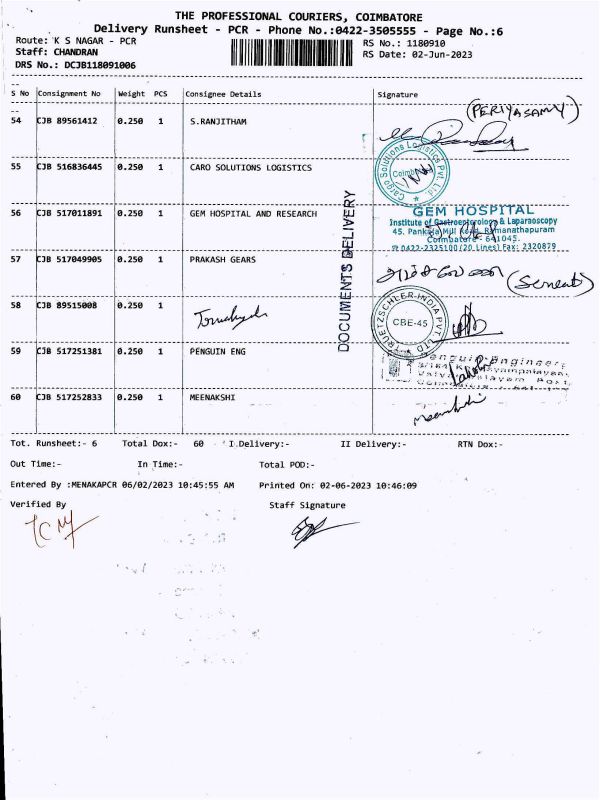 THE PROFESSIONAL COURIERS, COIMBATORE
Delivery Runsheet - PCR - Phone No.:0422-3505555 - Page No.:6
Route: K S NAGAR - PCR
RS No.: 1180910
Staff: CHANDRAN
RS Date: 02-Jun-2023
DRS No.: DCJB118091006
S No Consignment No Weight PCS Consignee Details Signature
(PERIYASAMY)
54 CJB 89561412 0.250 1 S.RANJITHAM
55 CJB 516836445 0.250 1 CARO SOLUTIONS LOGISTICS
Cargo Solutions Logistics Pvt. Ltd
56 CJB 517011891 0.250 1 GEM HOSPITAL AND RESEARCH
GEM HOSPITAL
Institute of Gastroenterology & Laparoscopy
45. Pankaja Mill Road, Ramanathapuram
Coimbatore - 641045.
0422-2325100 (20 Lines) Fax: 2320879
DOCUMENTS DELIVERY
57 CJB 517049905 0.250 1 PRAKASH GEARS
58 CJB 89515008 0.250 1
TRUETZSCHLER INDIA PVT. LTD
CBE-45
59 CJB 517251381 0.250 1 PENGUIN ENG
Penguin Engineers
60 CJB 517252833 0.250 1 MEENAKSHI
Meenakshi
Tot. Runsheet:- 6 Total Dox:- 60 I Delivery:- II Delivery:- RTN Dox:-
Out Time:- In Time:- Total POD:-
Entered By :MENAKAPCR 06/02/2023 10:45:55 AM Printed On: 02-06-2023 10:46:09
Verified By Staff Signature